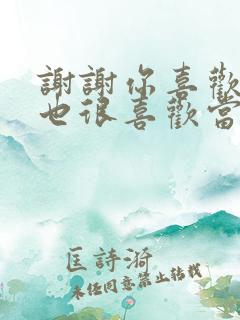 謝謝你喜歡
也很喜歡當
匡詩漪
未經同意禁止轉載